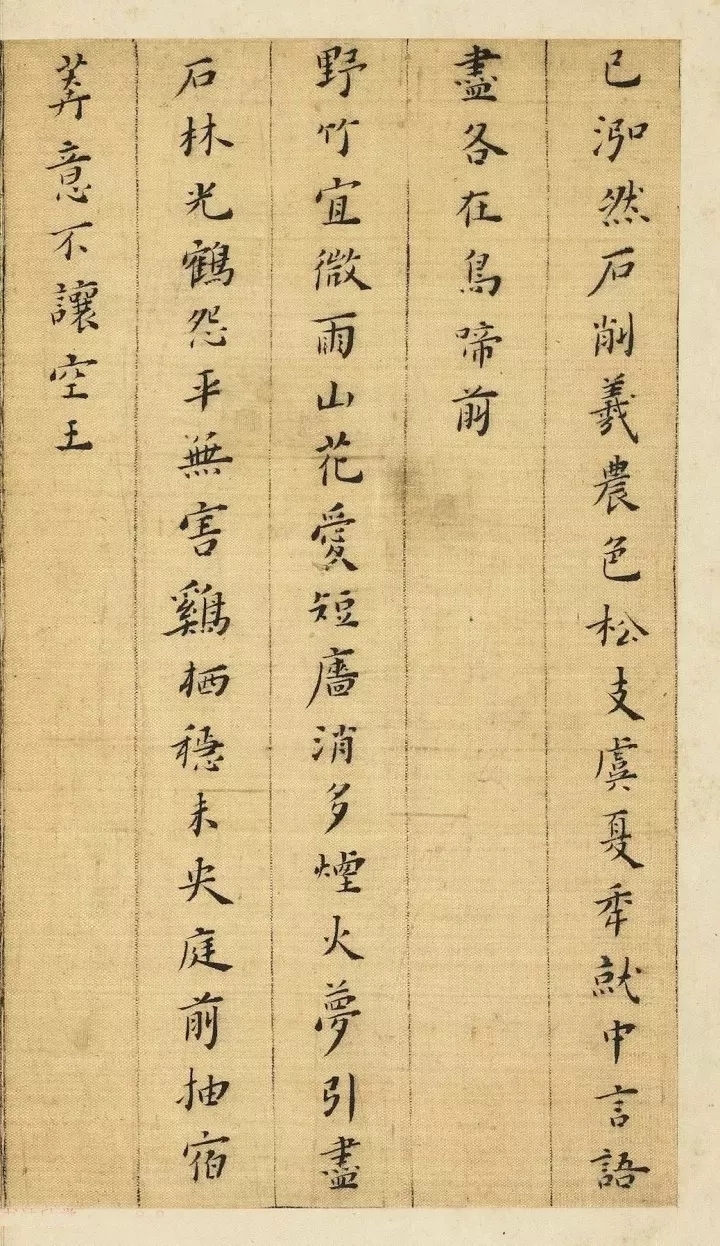 已泓然石削羲農色松支虞夏季就中言語
盡各在鳥啼前
野竹宜微雨山花愛短廧消多煙火夢引盡
石林光鶴怨平無害鷄栖穩未央庭前抽宿
莽意不讓空王